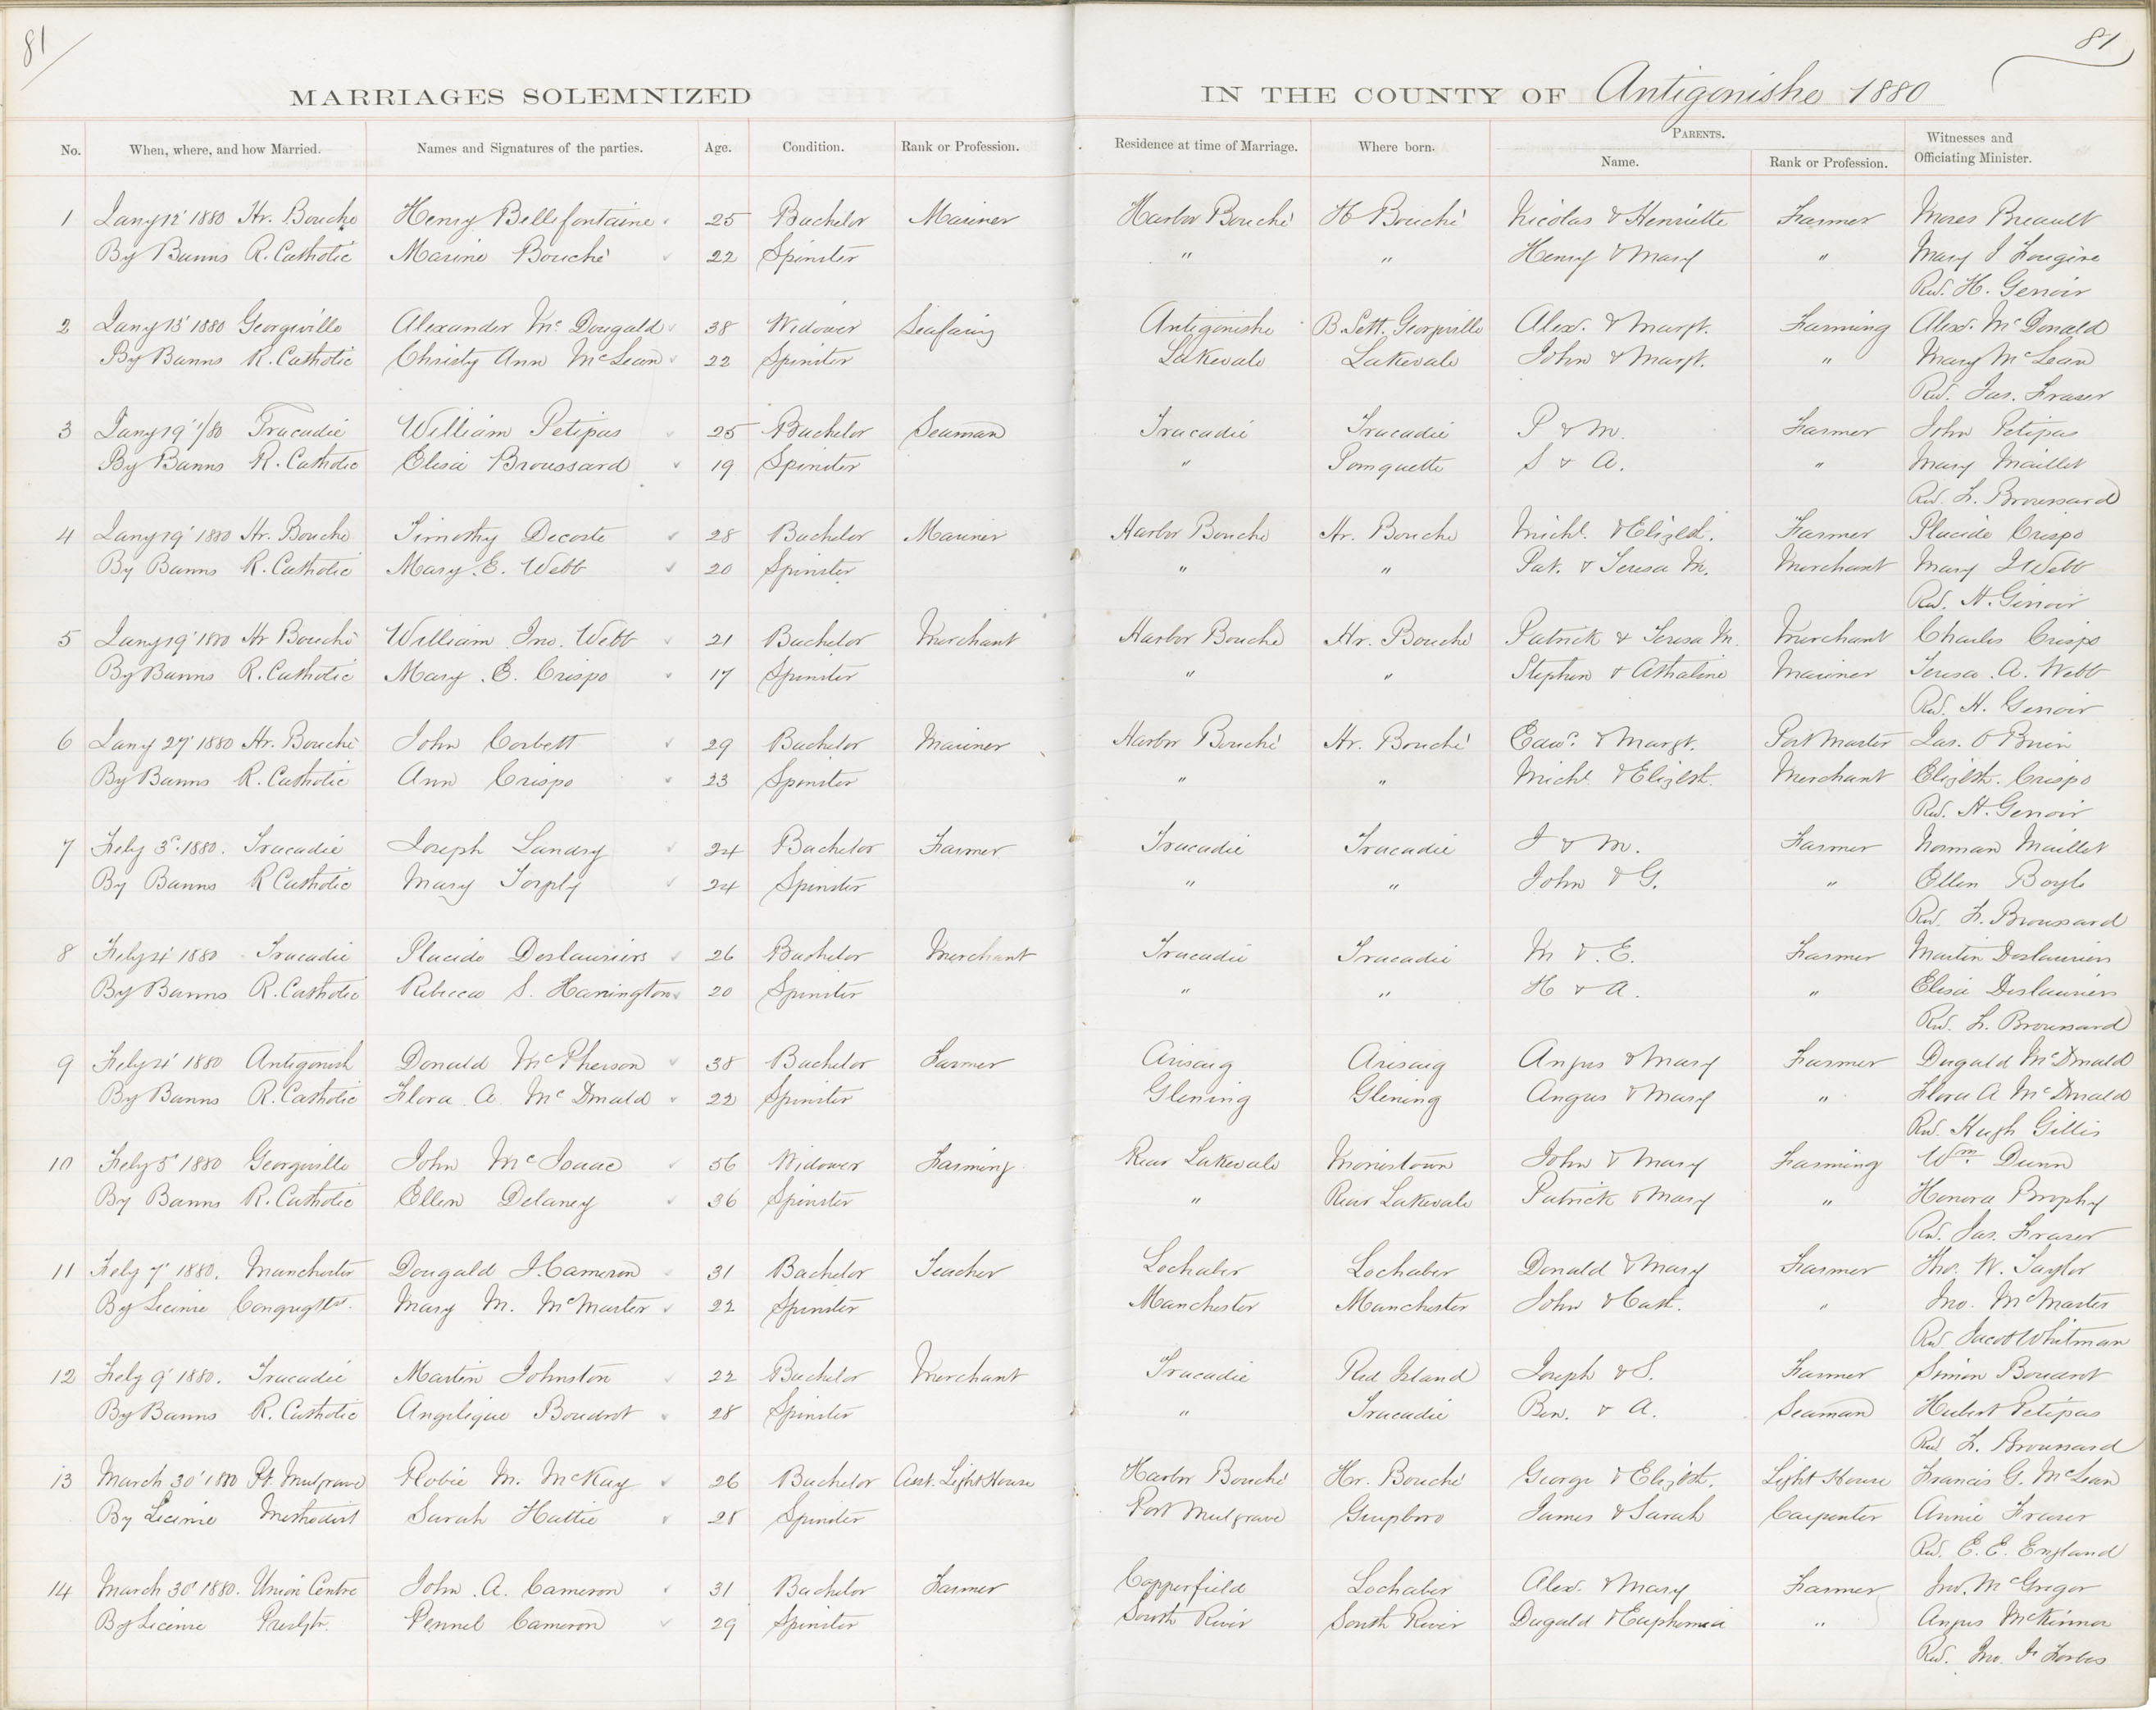 81
81
MARRIAGES SOLEMNIZED IN THE COUNTY OF Antigonishe 1880
No. When, where, and how Married. Names and Signatures of the parties. Age. Condition. Rank or Profession. Residence at time of Marriage. Where born. PARENTS. Name. Rank or Profession. Witnesses and Officiating Minister.
1 Jany 12' 1880 Hr. Bouche Henry Bellefontaine 25 Bachelor Mariner Harbor Bouché H Bouché Nicolas & Henriette Farmer Moses Breault
By Banns R. Catholic Marine Bouché 22 Spinster " " Henry & Mary " Mary J
Rev. H. Gerroir
2 Jany 13' 1880 Georgeville Alexander McDougald 38 Widower Seafaring Antigonishe B. Sett. Georgeville Alexr. & Margt. Farming Alexr. McDonald
By Banns R. Catholic Christy Ann McLean 22 Spinster Lakevale Lakevale John & Margt. " Mary McLean
Rev. Jas. Fraser
3 Jany 19' 1/80 Tracadie William Petipas 25 Bachelor Seaman Tracadie Tracadie P & M. Farmer John Petipas
By Banns R. Catholic Elisa Broussard 19 Spinster " Pomquette S & A. " Mary Maillet
Rev. L. Broussard
4 Jany 19' 1880 Hr. Bouche Timothy Decoste 28 Bachelor Mariner Harbor Bouche Hr. Bouche Michl. & Elizbth. Farmer Placide Crispo
By Banns R. Catholic Mary E. Webb 20 Spinster " " Pat. & Teresa M. Merchant Mary J Webb
Rev. H. Gerroir
5 Jany 19' 1880 Hr Bouché William Jno. Webb 21 Bachelor Merchant Harbor Bouche Hr. Bouché Patrick & Teresa M. Merchant Charles Crispo
By Banns R. Catholic Mary E. Crispo 17 Spinster " " Stephen & Athaline Mariner Teresa A. Webb
Rev. H. Gerroir
6 Jany 27' 1880 Hr. Bouché John Corbett 29 Bachelor Mariner Harbor Bouché Hr. Bouché Edwd. & Margt. Port Master Jas. O Brien
By Banns R. Catholic Ann Crispo 23 Spinster " " Michl. & Elizbth. Merchant Elizbth. Crispo
Rev. H. Gerroir
7 Feby 3d. 1880. Tracadie Joseph Landry 24 Bachelor Farmer Tracadie Tracadie J & M. Farmer Norman Maillet
By Banns R Catholic Mary Torply 24 Spinster " " John & G. " Ellen Boyle
Rev. L. Broussard
8 Feby 4' 1880 Tracadie Placide Deslauriers 26 Bachelor Merchant Tracadie Tracadie M & E. Farmer Martin Deslauriers
By Banns R. Catholic Rebecca S. Harrington 20 Spinster " " H & A. " Elisa Deslauriers
Rev. L. Broussard
9 Feby 4' 1880 Antigonish Donald McPherson 38 Bachelor Farmer Arisaig Arisaig Angus & Mary Farmer Dugald McDonald
By Banns R. Catholic Flora A. McDonald 22 Spinster Glening Glening Angus & Mary " Flora A McDonald
Rev. Hugh Gillis
10 Feby 5' 1880 Georgeville John McIsaac 56 Widower Farming Rear Lakevale Morristown John & Mary Farming Wm. Dunn
By Banns R. Catholic Ellen Delaney 36 Spinster " Rear Lakevale Patrick & Mary " Honora Brophy
Rev. Jas. Fraser
11 Feby 7' 1880. Manchester Dougald J. Cameron 31 Bachelor Teacher Lochaber Lochaber Donald & Mary Farmer Tho. W. Taylor
By License Congregtst. Mary M. McMaster 22 Spinster Manchester Manchester John & Cath. " Jno. McMaster
Rev Jacob Whitman
12 Feby 9' 1880. Tracadie Martin Johnston 22 Bachelor Merchant Tracadie Red Island Joseph & S. Farmer Simon Boudrot
By Banns R. Catholic Angelique Boudrot 28 Spinster " Tracadie Ben. & A. Seaman Hubert Petipas
Rev L. Broussard
13 March 30' 1880 Pt Mulgrave Robie M. McKay 26 Bachelor Asst. Light House Harbor Bouché Hr. Bouché George & Elizbth. Light House Francis G. McLean
By License Methodist Sarah Hattie 28 Spinster Port Mulgrave Guysboro James & Sarah Carpenter Annie Fraser
Rev. E. E. England
14 March 30' 1880. Union Centre John A. Cameron 31 Bachelor Farmer Copperfield Lochaber Alexr. & Mary Farmer Jno. McGregor
By License Presbytr. Pennel Cameron 29 Spinster South River South River Dugald & Euphemia " Angus McKinnon
Rev. Jno. F Forbes